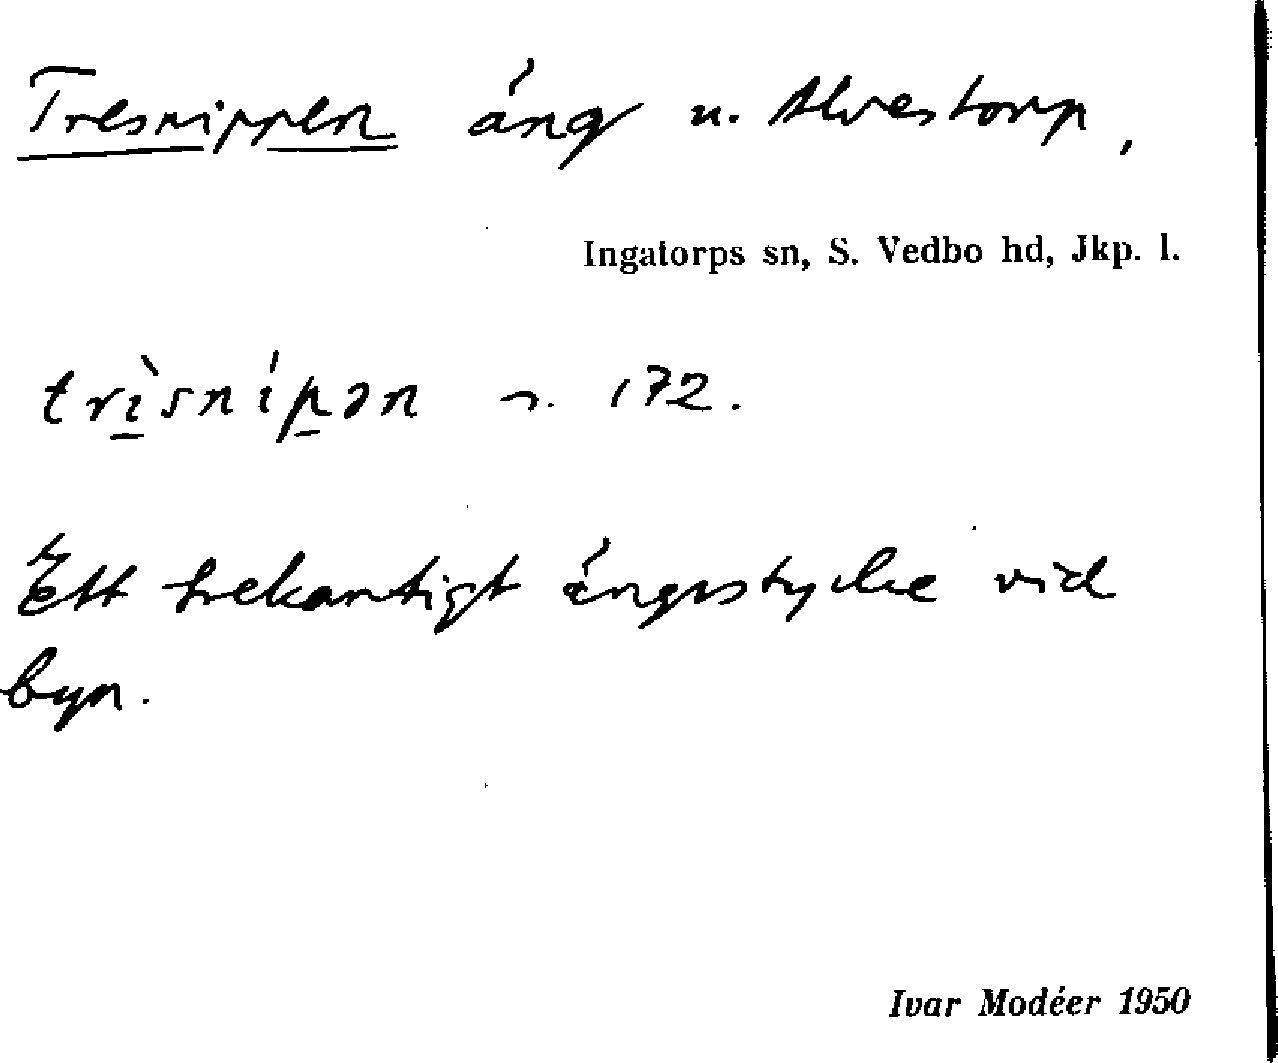 Tresnippen äng u. Alvestorp,
Ingatorps sn, S. Vedbo hd, Jkp. l.
trìsnípən n. 172.
Ett trekantigt ängsstycke vid
byn.
Ivar Modéer 1950